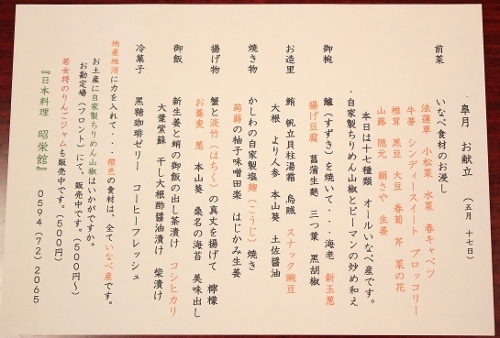 皐月 お献立 （五月 十七日）
前菜 いなべ食材のお浸し
法蓮草 小松菜 水菜 春キャベツ
牛蒡 シンディースイート ブロッコリー
椎茸 黒豆 大豆 春菊 芹 菜の花
山蕗 隠元 絹さや 生姜
本日は十七種類 オールいなべ産です。
・自家製ちりめん山椒とピーマンの炒め和え
御椀 鱸（すずき）を焼いて・・・海老 新玉葱
揚げ豆腐 菖蒲生麩 三つ葉 黒胡椒
お造里 鮪 帆立貝柱湯霜 烏賊 スナック豌豆
大根 より人参 本山葵 土佐醤油
焼き物 かしわの自家製塩麹（こうじ）焼き
蒟蒻の柚子味噌田楽 はじかみ生姜
揚げ物 蟹と淡竹（はちく）の真丈を揚げて 檸檬
お蕎麦 葱 本山葵 桑名の海苔 美味出し
御飯 新生姜と蛸の御飯の出し茶漬け コシヒカリ
大葉紫蘇 干し大根酢醤油漬け 柴漬け
冷菓子 黒糖珈琲ゼリー コーヒーフレッシュ
地産地消に力を入れて・・・橙色の食材は、全ていなべ産です。
お土産に自家製ちりめん山椒はいかがですか。
お勘定場（フロント）にて、販売中です。（５００円〜）
若女将のりんごジャムも販売中です。（５００円）
『日本料理 昭栄館』 ０５９４（７２）２０６５